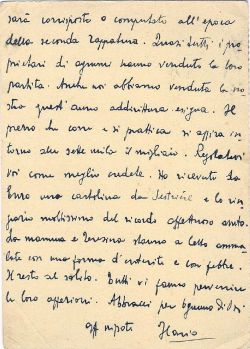 sarà corrisposto o computato all'epoca
della seconda zappatura. Quasi tutti i pro-
prietari di agrumi hanno venduto la loro
partita. Anche noi abbiamo venduta la no-
stra quest'anno addirittura esigua. Il
prezzo che corre e si pratica si aggira in-
torno alle sette mila il migliaio. Regolatevi
voi come meglio credete. Ho ricevuto da
Enzo una cartolina da Sestrière e lo rin-
grazio moltissimo del ricordo affettuoso avuto.
La mamma e Teresina stanno a letto amma-
late con una forma d'enterite e con febbre.
Il resto al solito. Tutti vi fanno pervenire
le loro affezioni. Abbracci per ognuno di voi
aff nipote Ilario